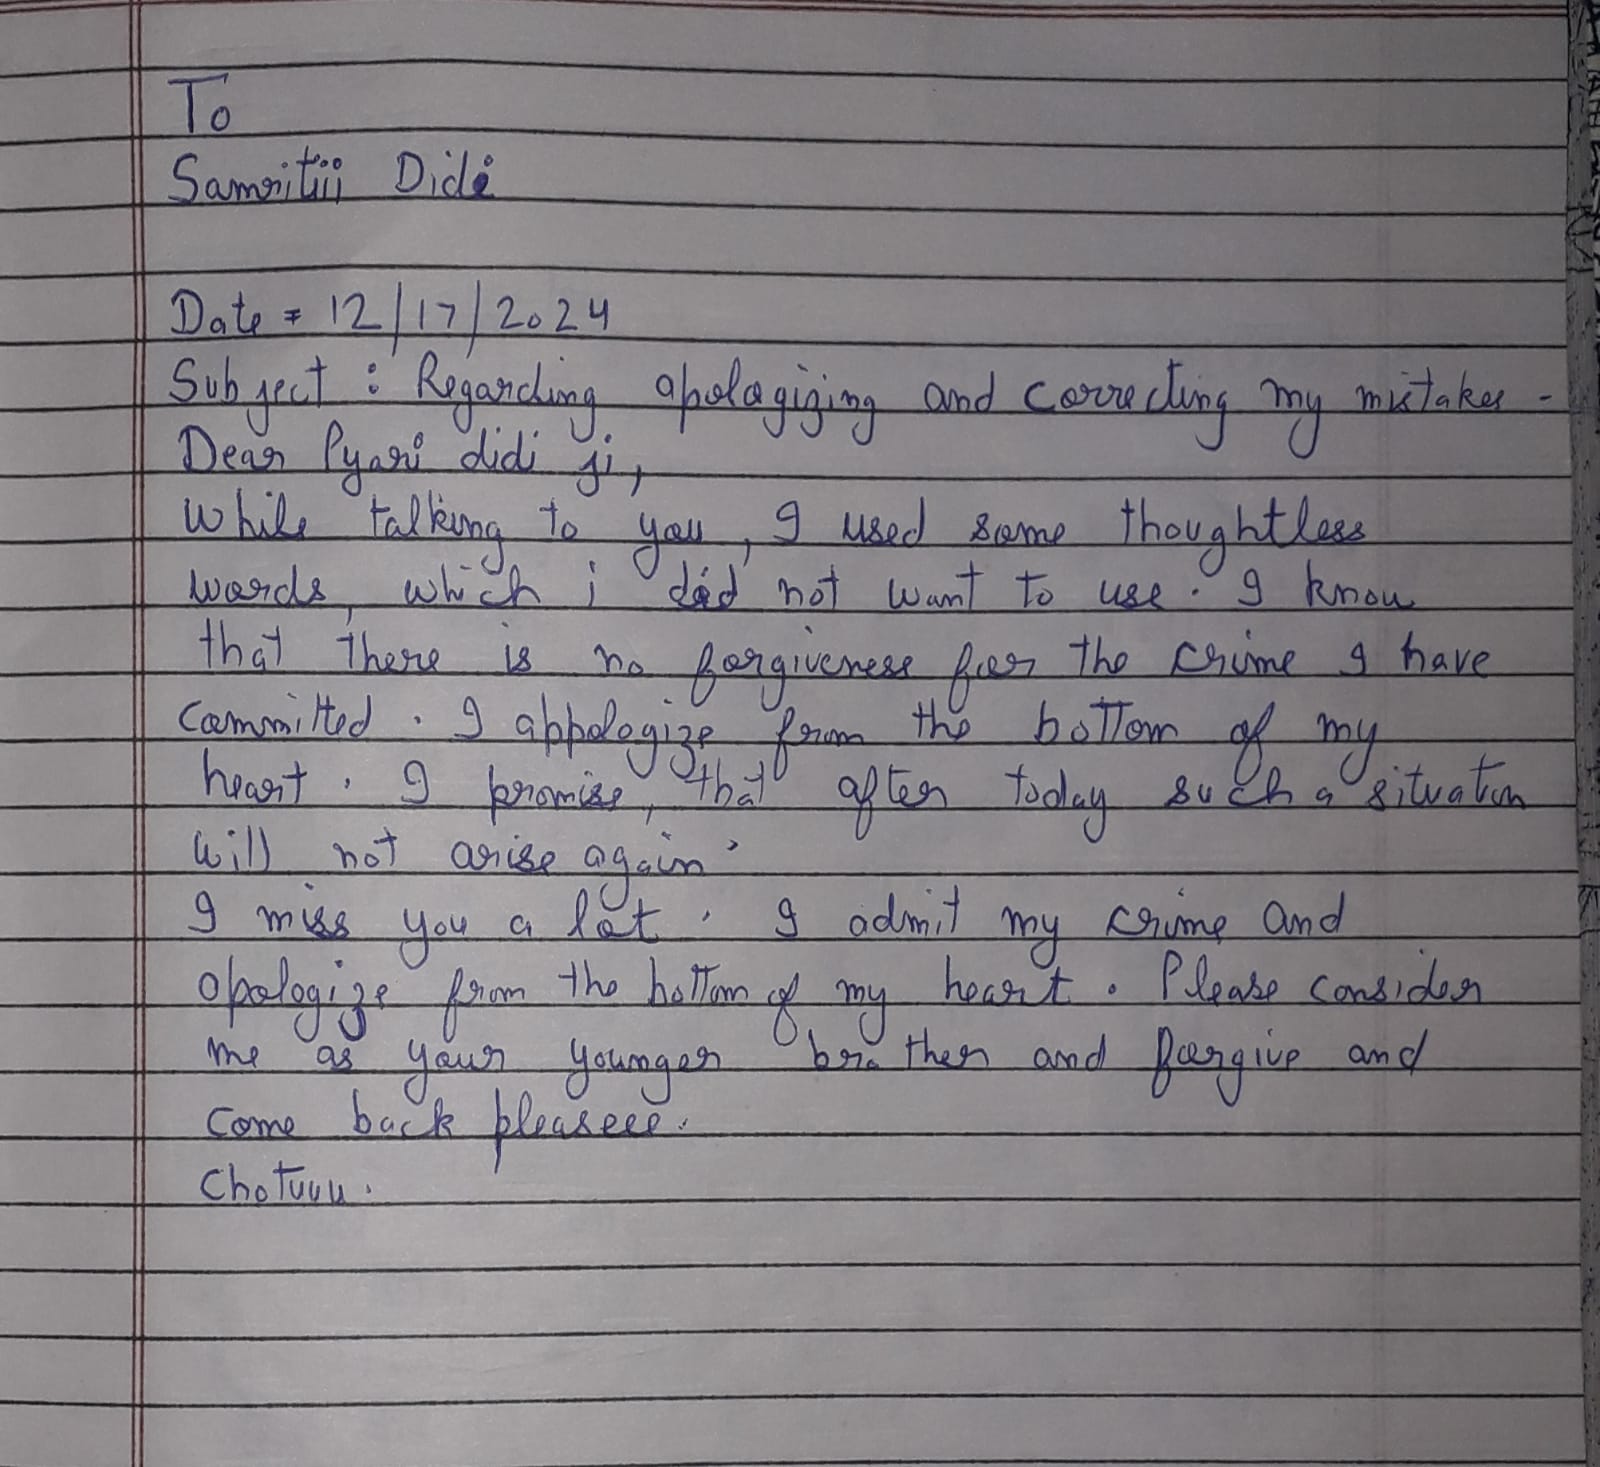 To
Samritiii Didi
Date = 12/17/2024
Subject : Regarding apologizing and correcting my mistakes -
Dear Pyari didi ji,
While talking to you, I used some thoughtless
words, which i did not want to use. I know
that there is no forgiveness for the crime I have
committed. I appologize from the bottom of my
heart. I promise, that after today such a situation
will not arise again.
I miss you a lot. I admit my crime and
apologize from the bottom of my heart. Please consider
me as your younger brother and forgive and
come back pleaseee.
Chotuuu.